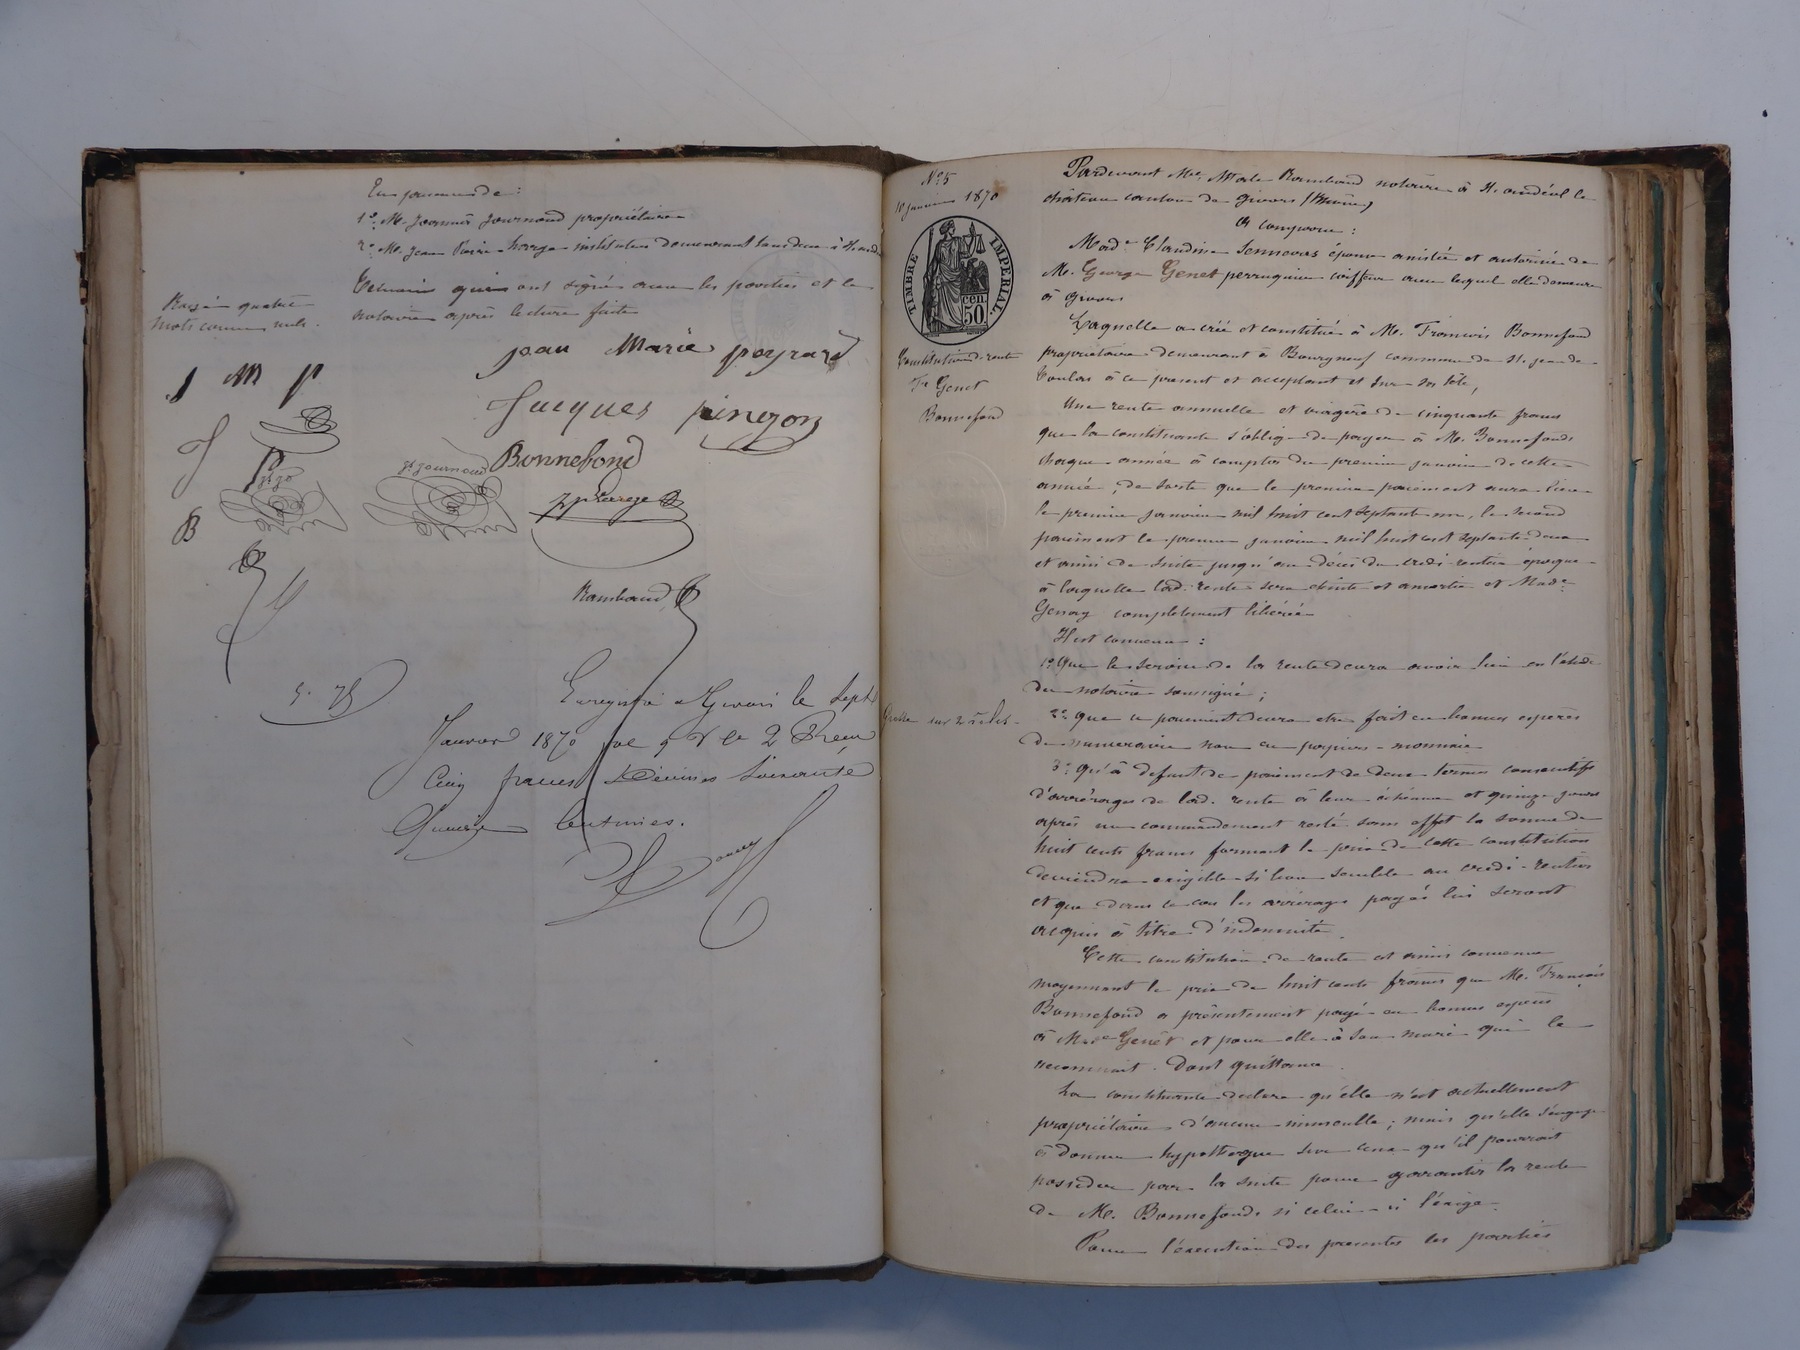 En présence de :
1° M. Joannès Journoud propriétaire
2° M. Jean Pierre Large instituteur demeurant tous deux à St andéol
Témoins qui ont signé avec les parties et le
notaire après lecture faite
Rayé quatre
mots comme nuls.
jean Marie peyrard
J M P
Jacques pinczon
J
Bonnebond
P
jt journoud
jt jo
jp Large
B
Rambaud
5. 75
Enregistré à Givors le sept
Janvier 1870 fol 9 V c 2 Reçu
Cinq francs Décimes Soixante
Quinze Centimes.
N° 5
10 Janvier 1870
TIMBRE IMPERIAL
50 cen.
Constitution de rente
Fe Genet
Bonnefond
Grosse sur 2 rôles
Pardevant Me Rambaud notaire à St andéol le
château canton de Givors (Rhône)
A comparu :
Made Claudine épouse assistée et autorisée de
M. George Genet perruquier coiffeur avec lequel elle demeure
à Givors
Laquelle a créé et constitué à M. François Bonnefond
propriétaire demeurant à Bourgneuf commune de St jean de
Toulas à ce présent et acceptant et sur sa tête,
Une rente annuelle et viagère de cinquante francs
que la constituante s'oblige de payer à M. Bonnefond
chaque année à compter du premier janvier de cette
année, de sorte que le premier paiement aura lieu
le premier janvier mil huit cent septante un, le second
paiement le premier janvier mil huit cent septante deux
et ainsi de suite jusqu'au décès du crédi-rentier époque
à laquelle lad. rente sera éteinte et amortie et Made
Genay complètement libérée
Il est convenu :
1° Que le service de la rente devra avoir lieu en l'étude
du notaire soussigné ;
2° que ce paiement devra etre fait en bonnes espèces
de numéraire non en papier-monnaie
3° qu'à défaut de paiement de deux termes consécutifs
d'arrérages de lad. rente à leur échéance et quinze jours
après un commandement resté sans effet la somme de
huit cents francs formant le prix de cette constitution
deviendra exigible si bon semble au crédi-rentier
et que dans ce cas les arrérages payés lui seront
acquis à titre d'indemnité.
Cette constitution de rente est ainsi convenue
moyennant le prix de huit cents francs que M. François
Bonnefond a présentement payé en bonnes espèces
à Made Genêt et pour elle à son mari qui le
reconnait. Dont quittance.
La constituante déclare qu'elle n'est actuellement
propriétaire d'aucun immeuble ; mais qu'elle s'engage
à donner hypothèque sur ceux qu'il pourrait
posséder par la suite pour garantir la rente
de M. Bonnefond si celui-ci l'éxige.
Pour l'éxécution des présentes les parties